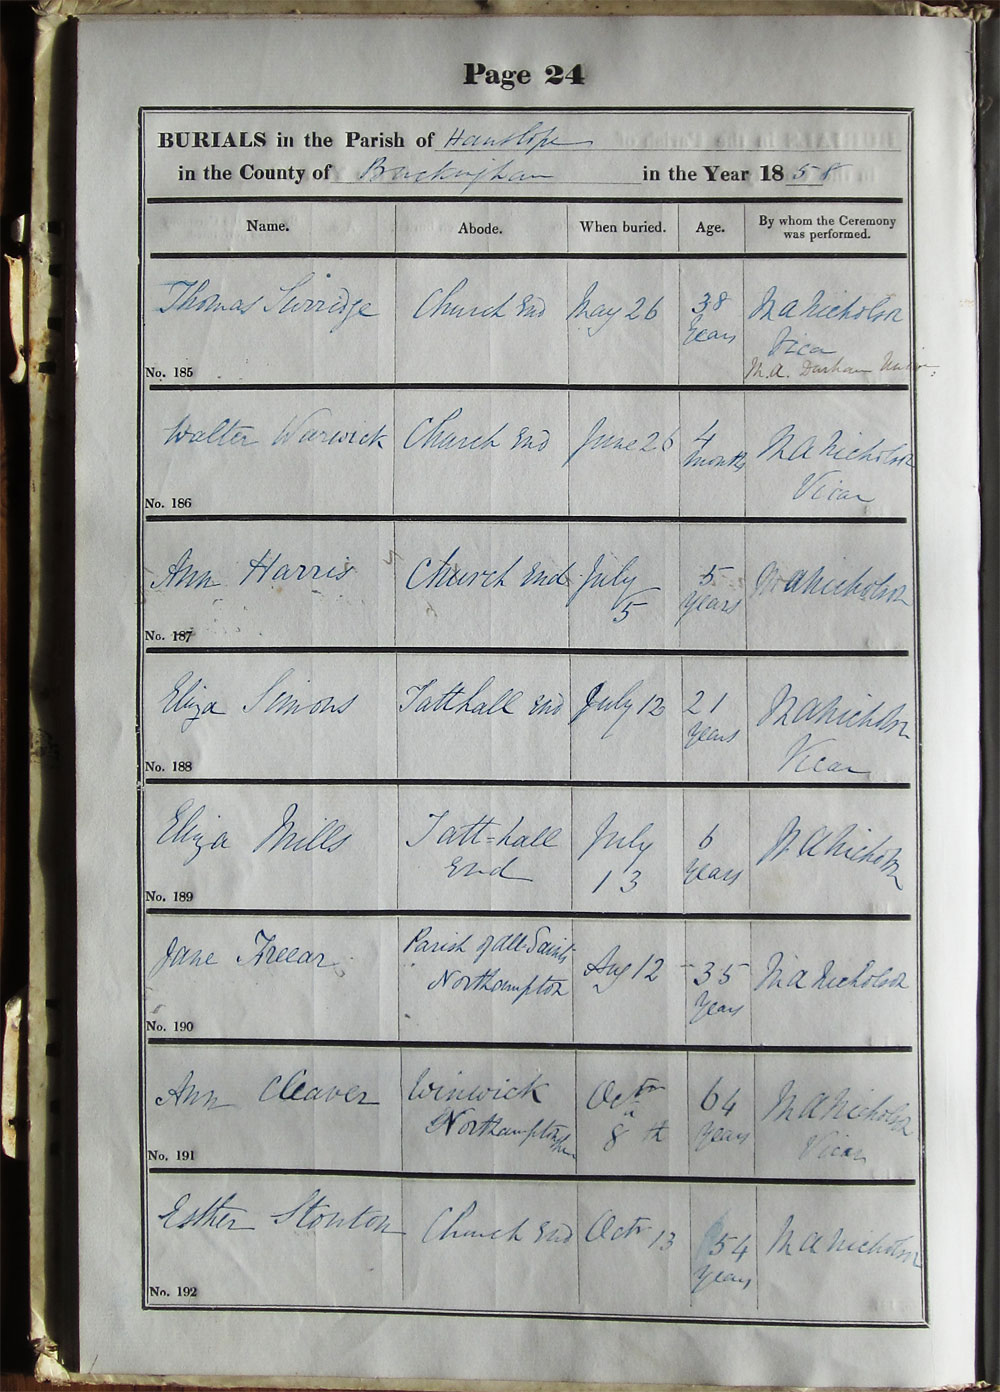 Page 24
BURIALS in the Parish of Hanslope
in the County of Buckingham in the Year 1858
Name. Abode. When buried. Age. By whom the Ceremony
was performed.
Thomas Surridge Church End May 26 38 M A Nicholson
Years Vicar
No. 185 M.A. Durham Univ:
Walter Warwick Church End June 26 4 M A Nicholson
months Vicar
No. 186
Ann Harris Church End July 5 M A Nicholson
5 years
No. 187
Eliza Simons Tatthall End July 12 21 M A Nicholson
years Vicar
No. 188
Eliza Mills Tatt=hall July 6 M A Nicholson
End 13 years
No. 189
Jane Freear Parish of All Saints Aug 12 35 M A Nicholson
Northampton Years
No. 190
Ann Cleaver Winwick Octbr 64 M A Nicholson
Northamptonshire 8th years Vicar
No. 191
Esther Stonton Church End Octr 13 54 M A Nicholson
years
No. 192